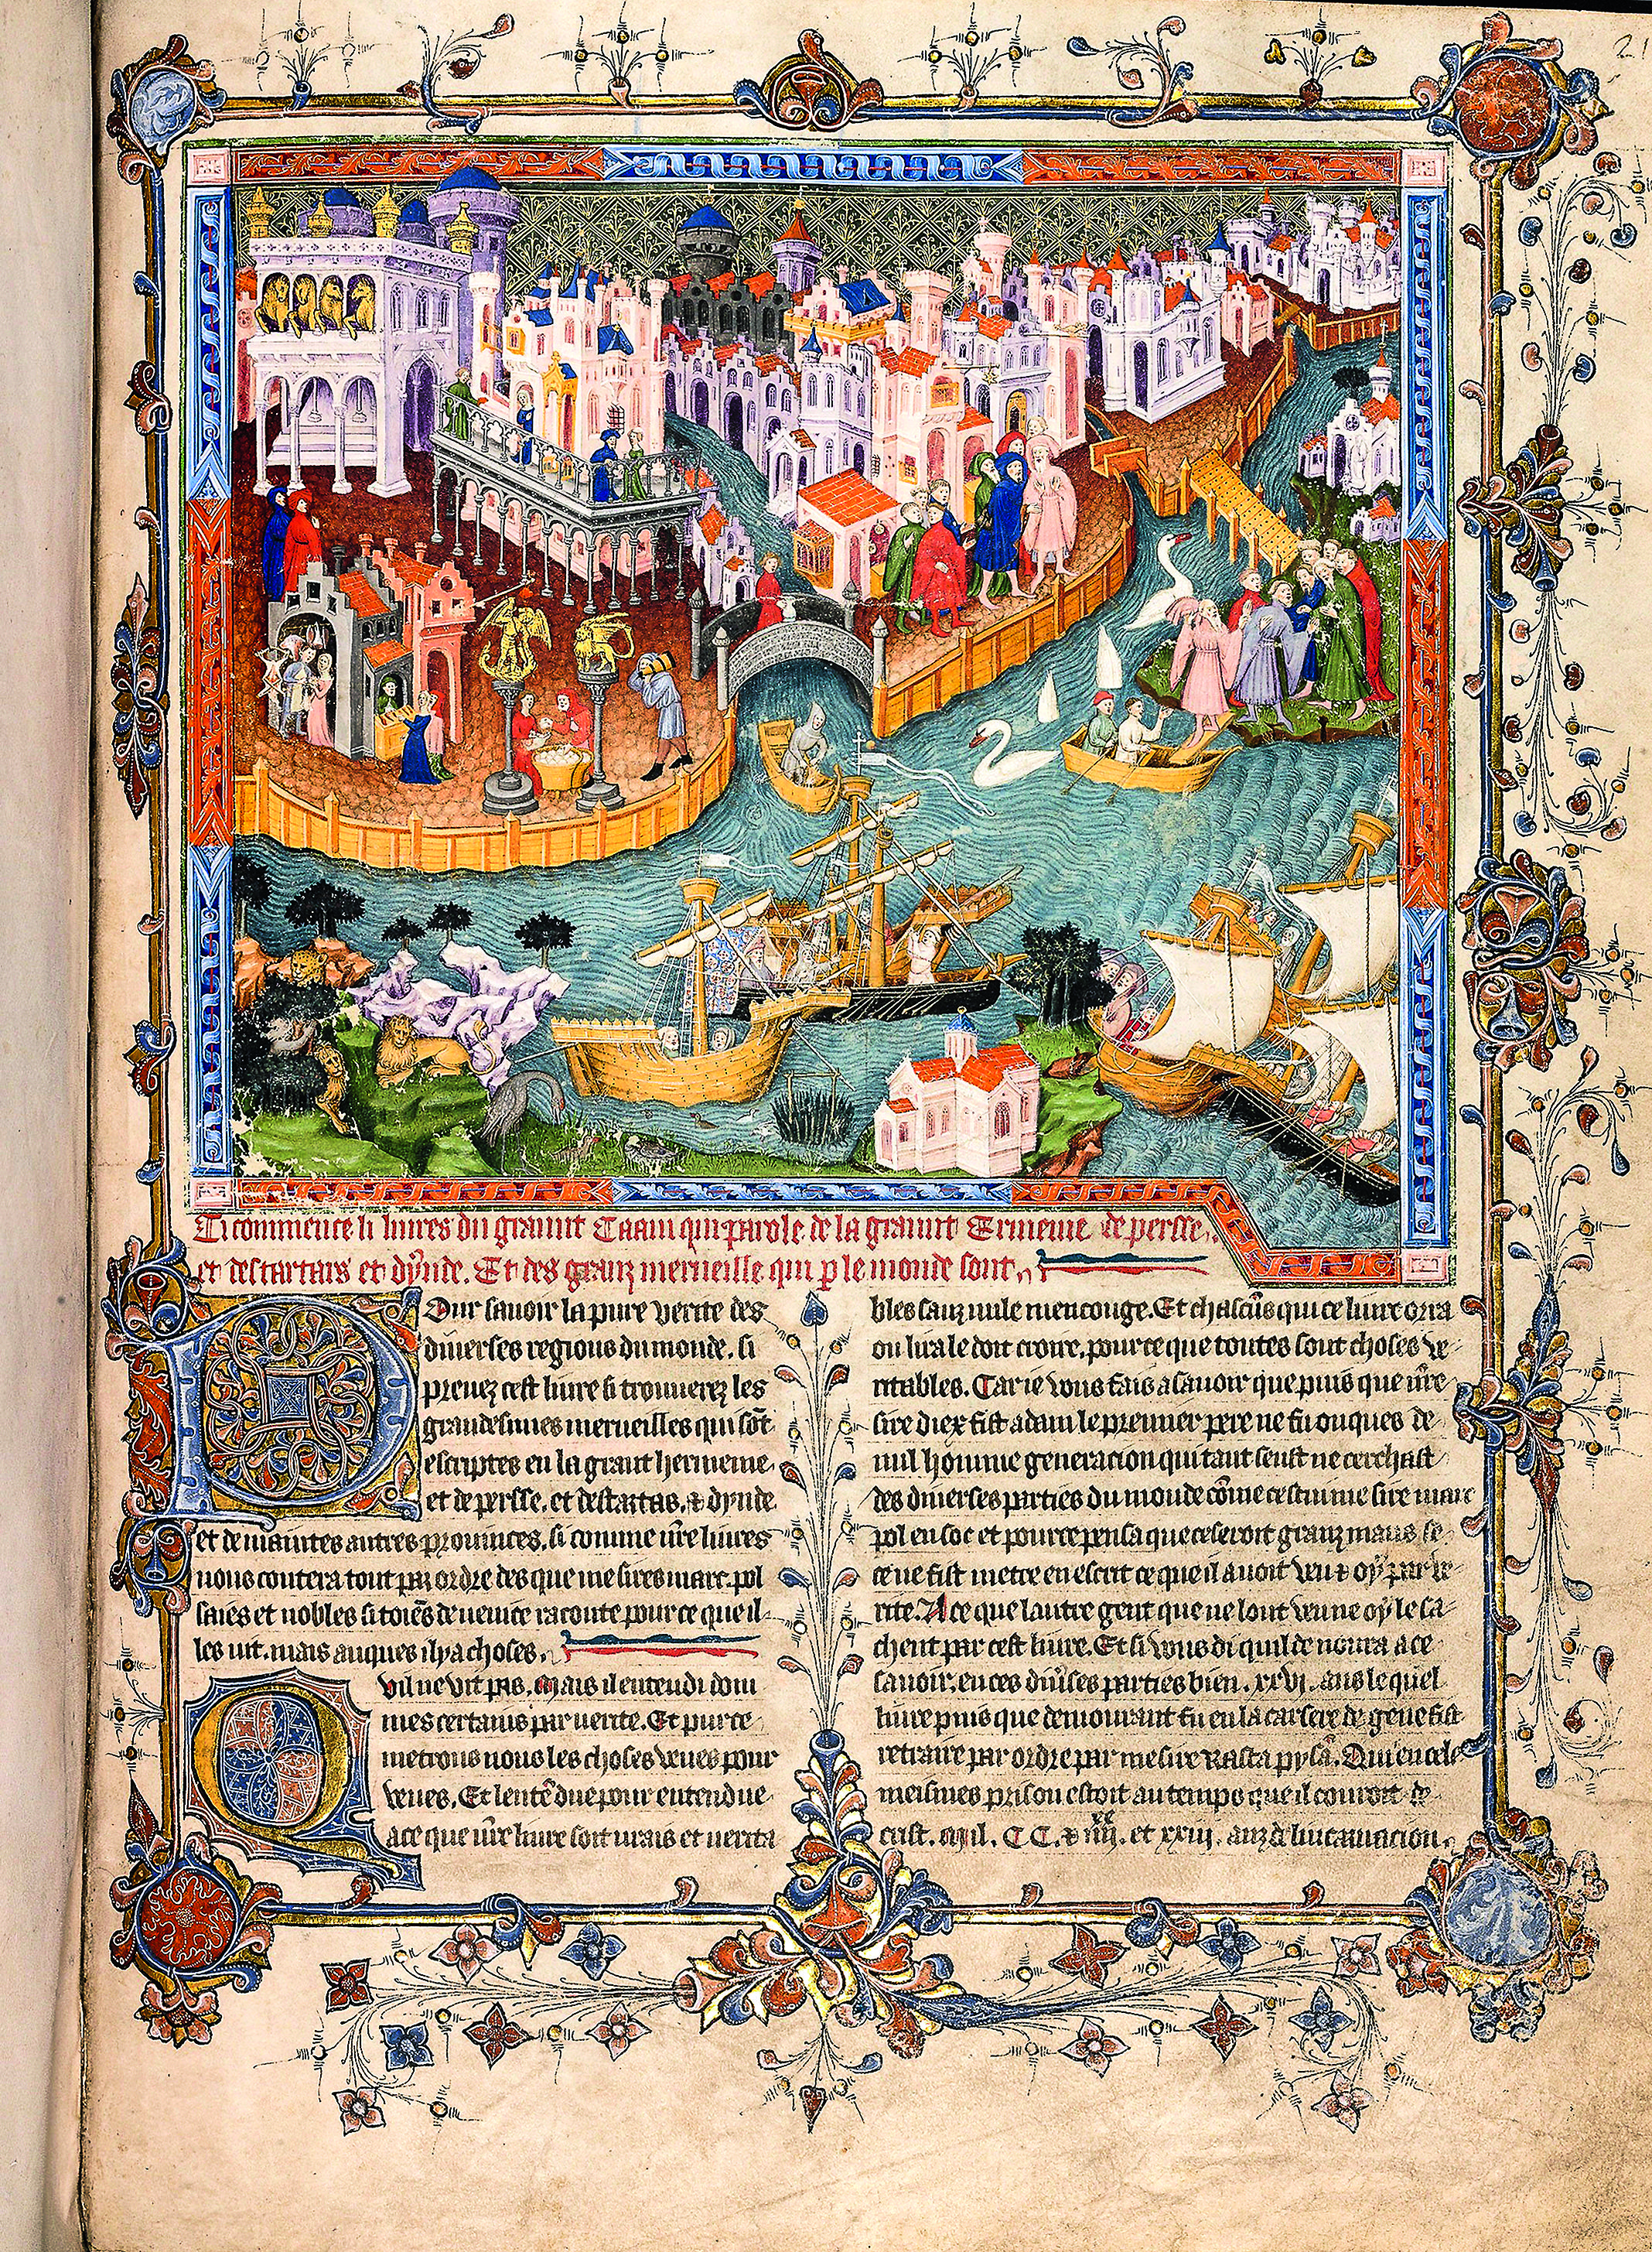 21
Ci commence li liures du graunt Caam qui parole de la graunt Ermenie de persse.
et des tartars et dynde. Et des granz merueille qui p le monde sont.
Pour sauoir la pure verite des
diuerses regions du monde. si
prenez cest liure si trouuerez les
grandesimes merueilles qui sōt
escriptes en la grant hermenie.
et de persse. et des tartas. & dynde
et de maintes autres prouinces. si comme nr̄e liures
nous contera tout par ordre des que mesires marc pol
saies et nobles sitoiēs de uenice raconte pour ce que il
les uit. mais auques il y a choses.
Quil ne vit pas. Mais il entendi dom
mes certains par uerite. Et pur ce
metrons nous les choses veues pour
veues. Et lentēdue pour entendue
a ce que nr̄e liure soit urais et uerita
bles sanz nule mencouge. Et chascūs qui ce liure orra
ou lira le doit croire. pour ce que toutes sont choses ve
ritables. Car ie vous fais a sauoir que puis que nr̄e
sire diex fist adam le premier pere ne fu onques de
nul homme generacion qui tant seust ne cerchast
des diuerses parties du monde cōme cestui me sire marc
pol en soc et pour ce pensa que ce seroit granz maus se
ce ne fist metre en escrit ce que il auoit veu & oy par ve
rite. A ce que lautre gent que ne lont veu ne oy le sa
chent par cest liure. Et si vous di quil demoura a ce
sauoir. en ces diūses parties bien. xxvj. ans le quel
liure puis que demourant fu en la carsere de gene fist
retraire par ordre par mesire Rasta pysā. Qui en cele
meismes prison estoit au temps que il couroit de
crist. Mil. CC. & iiij.xx et xviij. anz de lincarnacion.